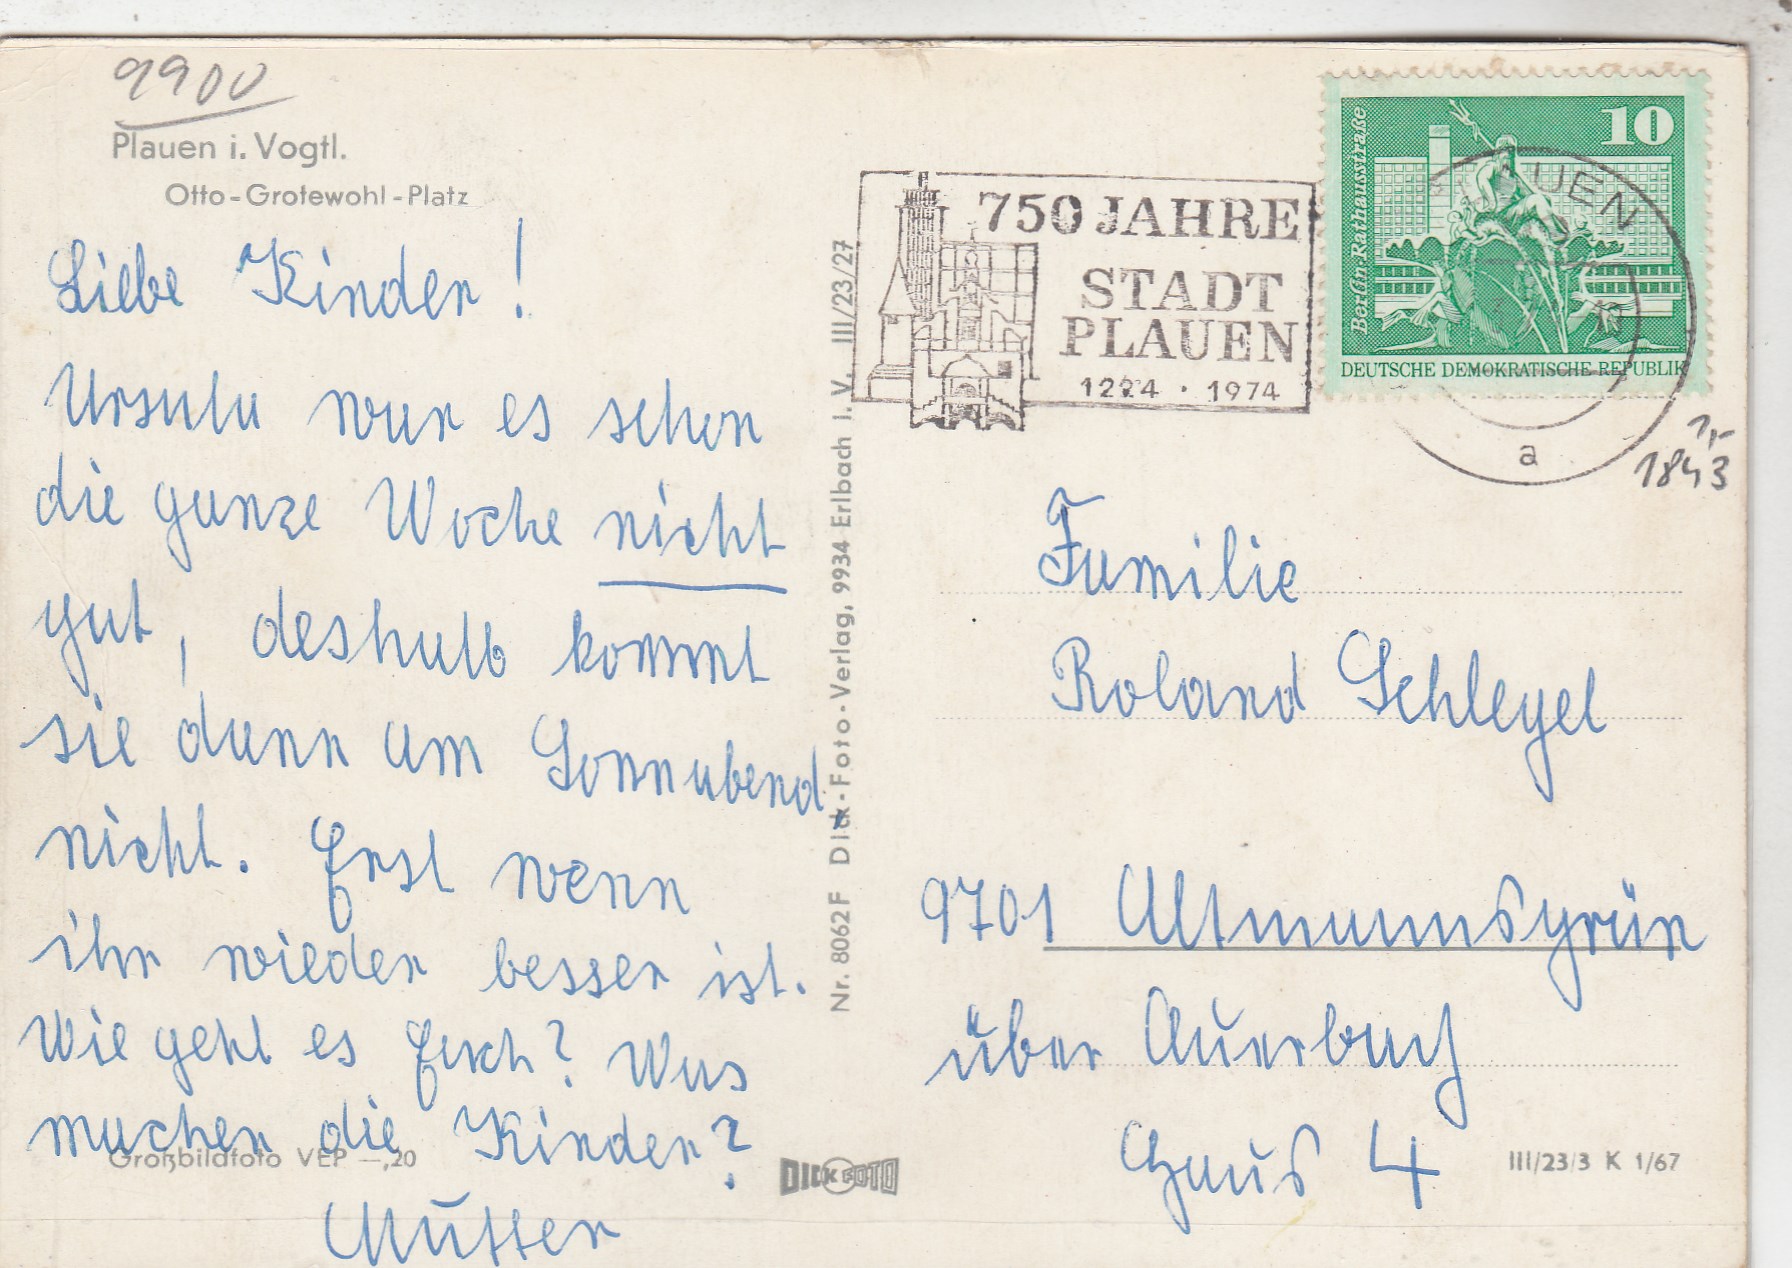 9900
Plauen i. Vogtl.
Otto-Grotewohl-Platz
Liebe Kinder!
Ursula war es schon
die ganze Woche nicht
gut, deshalb kommt
sie dann am Sonnabend
nicht. Erst wenn
ihr wieder besser ist.
Wie geht es Euch? Was
machen die Kinder?
Mutter
Großbildfoto VEP —,20
Nr. 8062 F Dick-Foto-Verlag, 9934 Erlbach i. V. III/23/27
DICK FOTO
750 JAHRE
STADT
PLAUEN
1224 · 1974
10
Berlin-Rathausstraße
DEUTSCHE DEMOKRATISCHE REPUBLIK
AUEN
a
1,-
1843
Familie
Roland Schlegel
9701 Altmannsgrün
über Auerbach
Haus 4
III/23/3 K 1/67